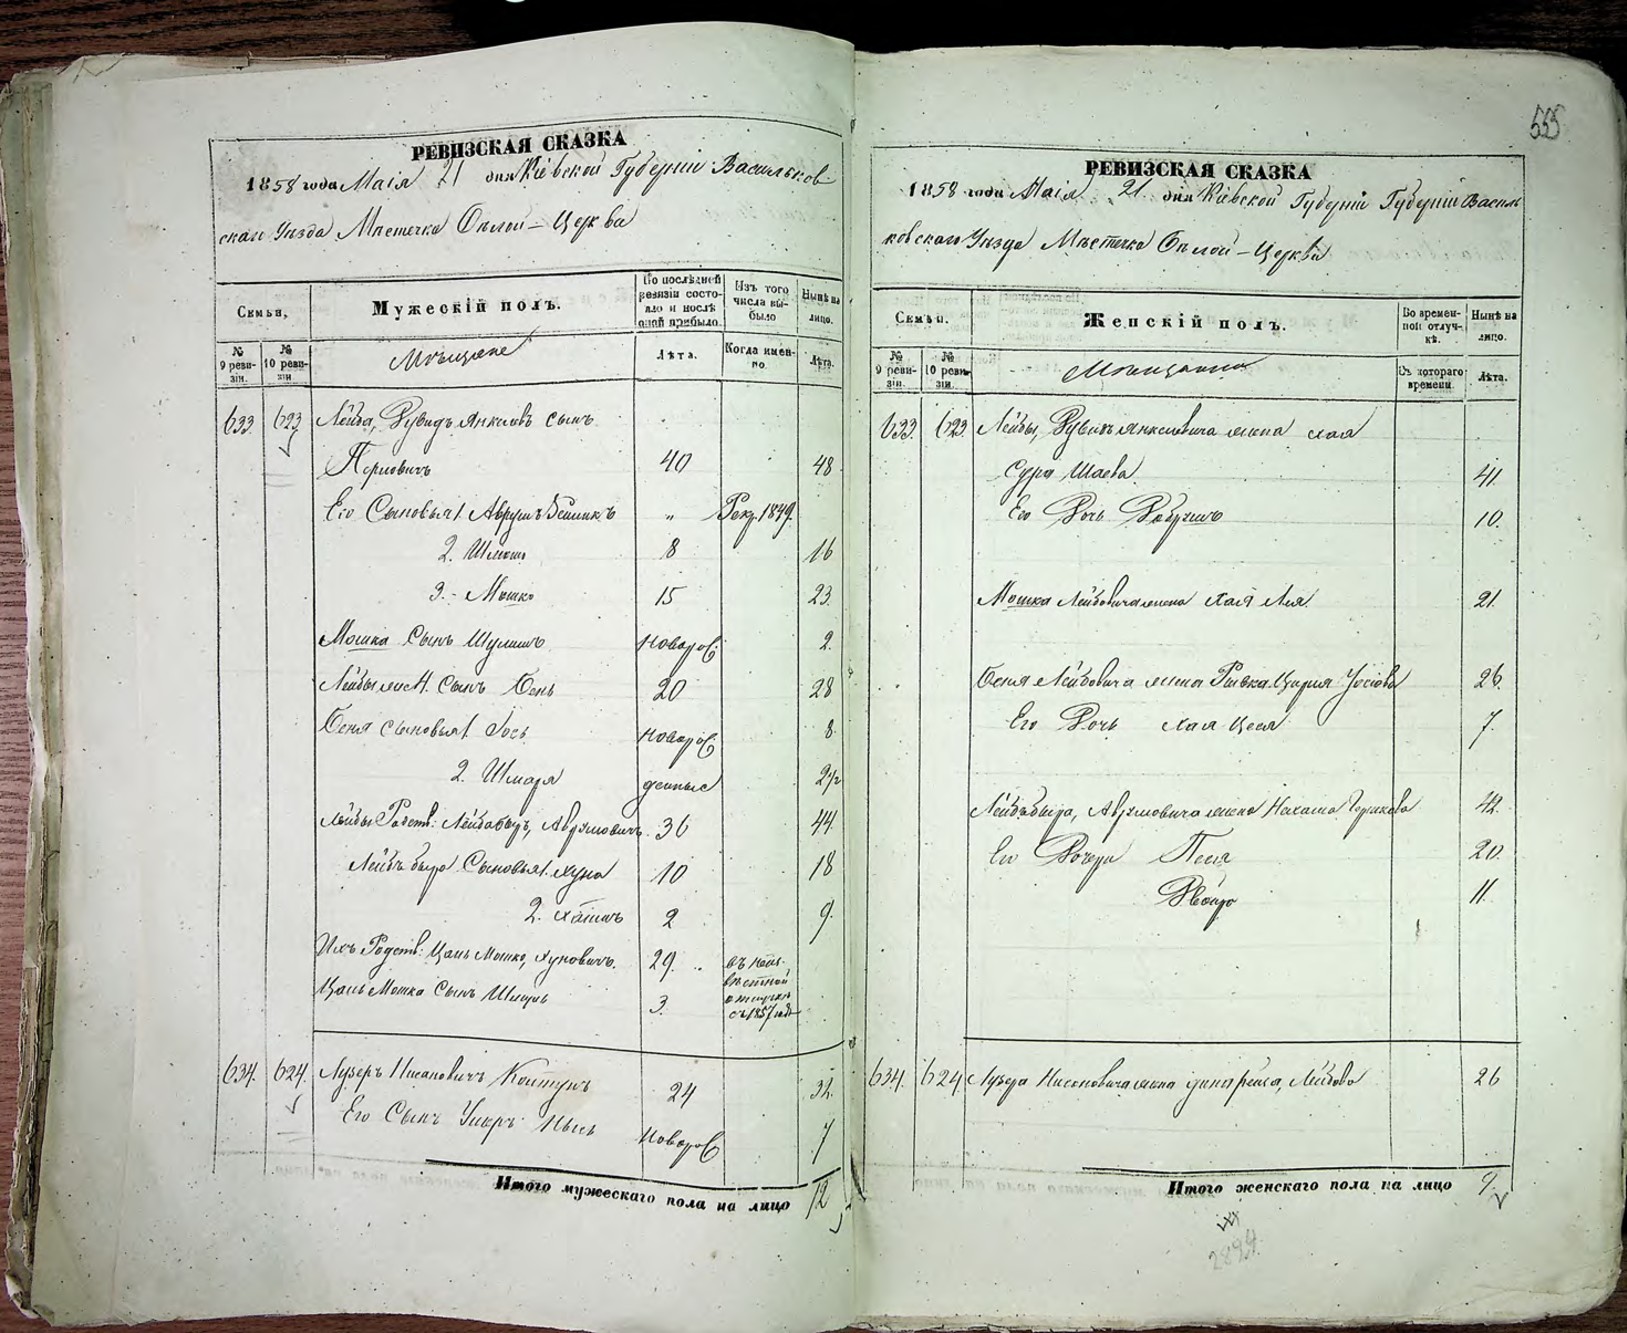 РЕВИЗСКАЯ СКАЗКА
1858 года Маія 21 дня Кіевской Губерніи Васильков-
скаго Уѣзда Мѣстечка Бѣлой-Церкви
Семьи,
Мужескій полъ.
По послѣдней ревизіи состояло и послѣ оной прибыло.
Изъ того числа выбыло
Нынѣ на лицо.
№ 9 ревизіи.
№ 10 ревизіи
Мѣщане
Лѣта.
Когда именно.
Лѣта.
633 623 Лейба, Дувидъ Янкелевъ сынъ
40 48
Его Сыновья 1. Рекр. 1849.
2. Шлема 8 16
3. Мошко 15 23
Мошка Сынъ новорож: 2.
Сынъ Бень 20 28
Беня сыновья 1. Іось новорож 8
2. Шмаря денные 2 1/2
Лейбы Родств: Аврумовичъ 36 44
Сыновья 1. Хуна 10 18
2. Хаимъ 2 9.
Ихъ Родств: Мошко, Хуновичъ. 29. въ неиз-
вѣстной
Мошка Сынъ 3. отлучкѣ
съ 1857 года
634. 624. Лузеръ Нисановичъ Колтунъ 24 32
Его Сынъ новорож 7
Итого мужескаго пола на лицо 12
555
РЕВИЗСКАЯ СКАЗКА
1858 года Маія 21 дня Кіевской Губерніи Губерніи Василь
ковскаго Уѣзда Мѣстечка Бѣлой-Церкви
Семьи.
Женскій полъ.
Во временной отлучкѣ.
Нынѣ на лицо.
№ 9 ревизіи.
№ 10 ревизіи.
Мѣщанки
Съ котораго времени.
Лѣта.
633. 623. Лейбы, Дувида Янкелевича жена Хая
Сура Шаева. 41.
Его Дочь 10.
Мошка Лейбовича жена Хая Лея. 21.
Беня Лейбовича жена Ривка Іосіова 26.
Его Дочь Хая Цеся 7.
Аврумовича жена Нехама Гершкова 42.
Его Дочери Песя 20.
Двойра 11.
634. 624 Лузера Нисановича жена Лейбова 26
Итого женскаго пола на лицо 9.
2894.